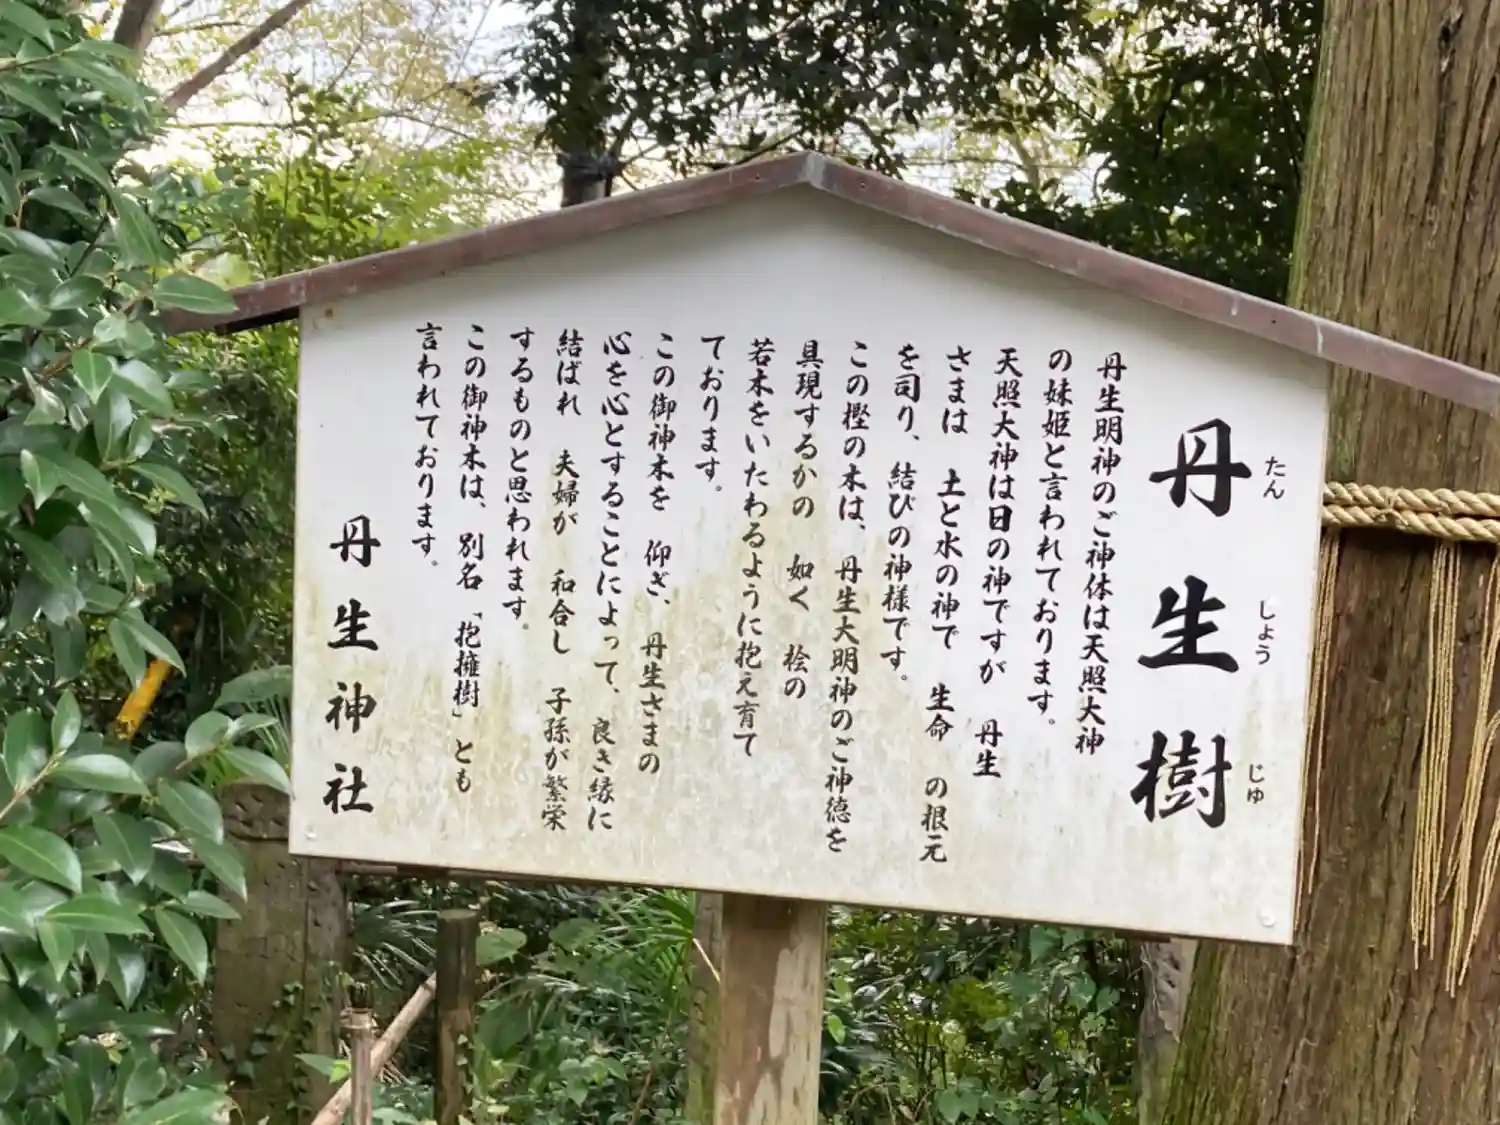 丹生樹
たんしょうじゅ
丹生明神のご神体は天照大神
の妹姫と言われております。
天照大神は日の神ですが 丹生
さまは 土と水の神で 生命 の根元
を司り、結びの神様です。
この樫の木は、丹生大明神のご神徳を
具現するかの 如く 桧の
若木をいたわるように抱え育て
ております。
この御神木を 仰ぎ、丹生さまの
心を心とすることによって、良き縁に
結ばれ 夫婦が 和合し 子孫が繁栄
するものと思われます。
この御神木は、別名「抱擁樹」とも
言われております。
丹生神社